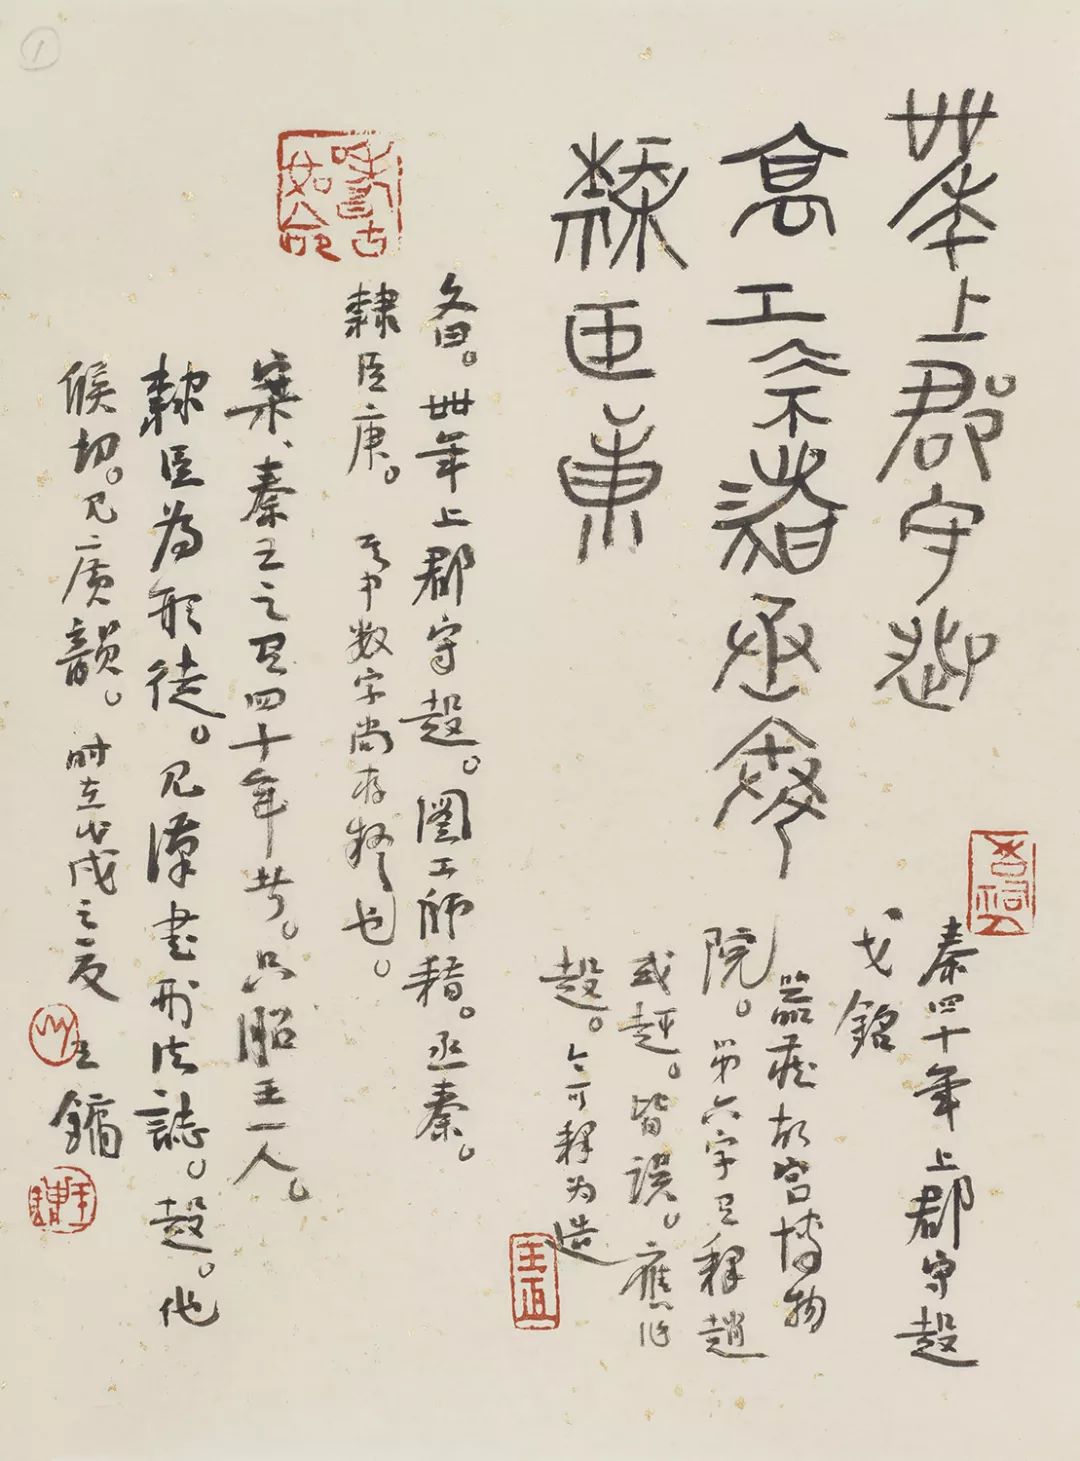 卌年上郡守起
高工帀耤丞秦
隸臣庚
秦四十年上郡守起
戈銘
器藏故宮博物
院。第六字旦釋趙
或趕。皆誤。應作
起。今可釋为造
文曰。卌年上郡守起。圖工師耤。丞秦。
隸臣庚。其中数字尚存疑也。
案、秦王之足四十年者。只昭王一人。
隸臣為刑徒。見漢書刑法誌。起。他
候切。見廣韻。時在戊戌之夏
王鏞
王鏞